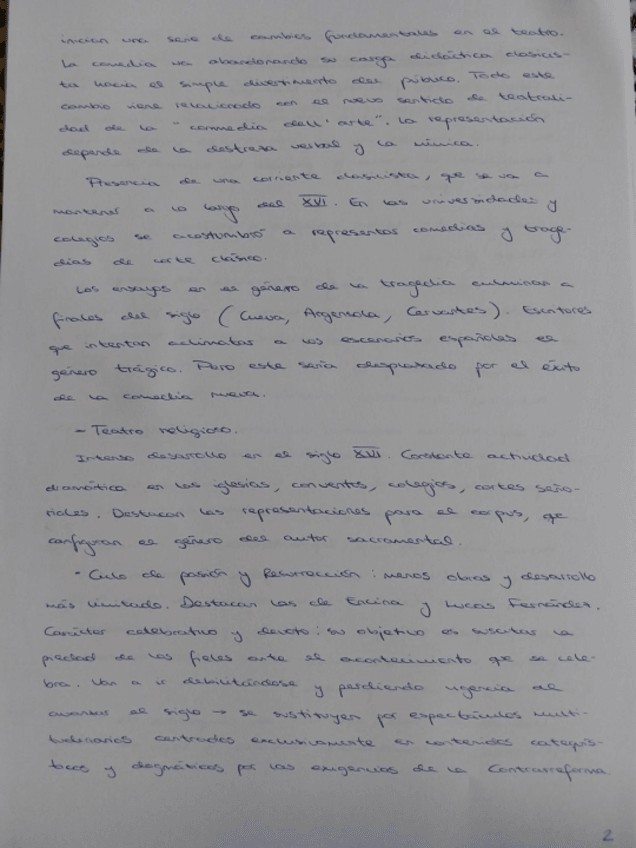 inician una serie de cambios fundamentales en el teatro.
La comedia va abandonando su carga didáctica clasicis-
ta hacia el simple divertimento del público. Todo este
cambio viene relacionado con el nuevo sentido de teatrali-
dad de la "commedia dell'arte". La representación
depende de la destreza verbal y la mímica.
Presencia de una corriente clasicista, que se va a
mantener a lo largo del XVI. En las universidades y
colegios se acostumbró a representar comedias y trage-
dias de corte clásico.
Los ensayos en el género de la tragedia culminan a
finales del siglo (Cueva, Argensola, Cervantes). Escritores
que intentan aclimatar a los escenarios españoles el
género trágico. Pero este sería desplazado por el éxito
de la comedia nueva.
- Teatro religioso.
Intenso desarrollo en el siglo XVI. Constante actividad
dramática en las iglesias, conventos, colegios, cortes seño-
riales. Destacan las representaciones para el corpus, que
configuran el género del autor sacramental.
· Ciclo de pasión y Resurrección: menos obras y desarrollo
más limitado. Destacan las de Encina y Lucas Fernández.
Carácter celebrativo y devoto: su objetivo es suscitar la
piedad de los fieles ante el acontecimiento que se cele-
bra. Van a ir debilitándose y perdiendo vigencia al
avanzar el siglo → se sustituyen por espectáculos multi-
tudinarios centrados exclusivamente en contenidos catequís-
ticos y dogmáticos por las exigencias de la Contrarreforma.
2